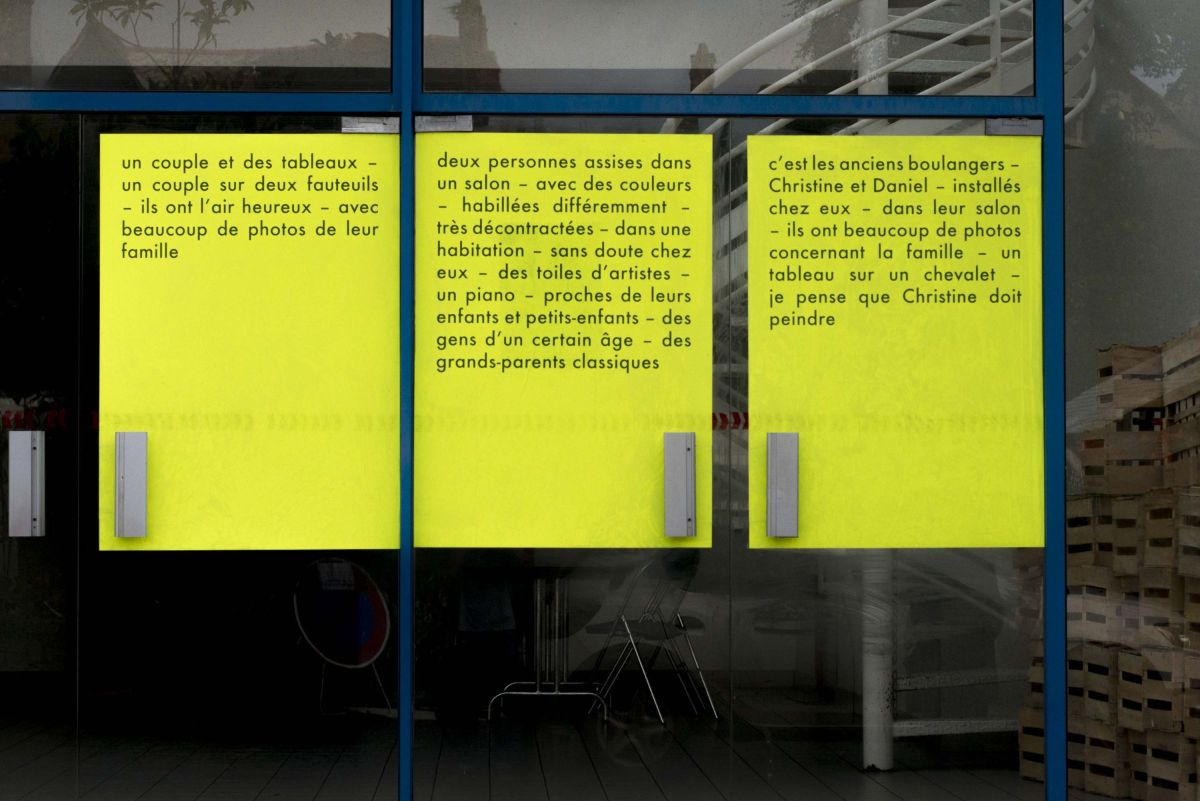 un couple et des tableaux –
un couple sur deux fauteuils
– ils ont l’air heureux – avec
beaucoup de photos de leur
famille
deux personnes assises dans
un salon – avec des couleurs
– habillées différemment –
très décontractées – dans une
habitation – sans doute chez
eux – des toiles d’artistes –
un piano – proches de leurs
enfants et petits-enfants – des
gens d’un certain âge – des
grands-parents classiques
c’est les anciens boulangers –
Christine et Daniel – installés
chez eux – dans leur salon
– ils ont beaucoup de photos
concernant la famille – un
tableau sur un chevalet –
je pense que Christine doit
peindre